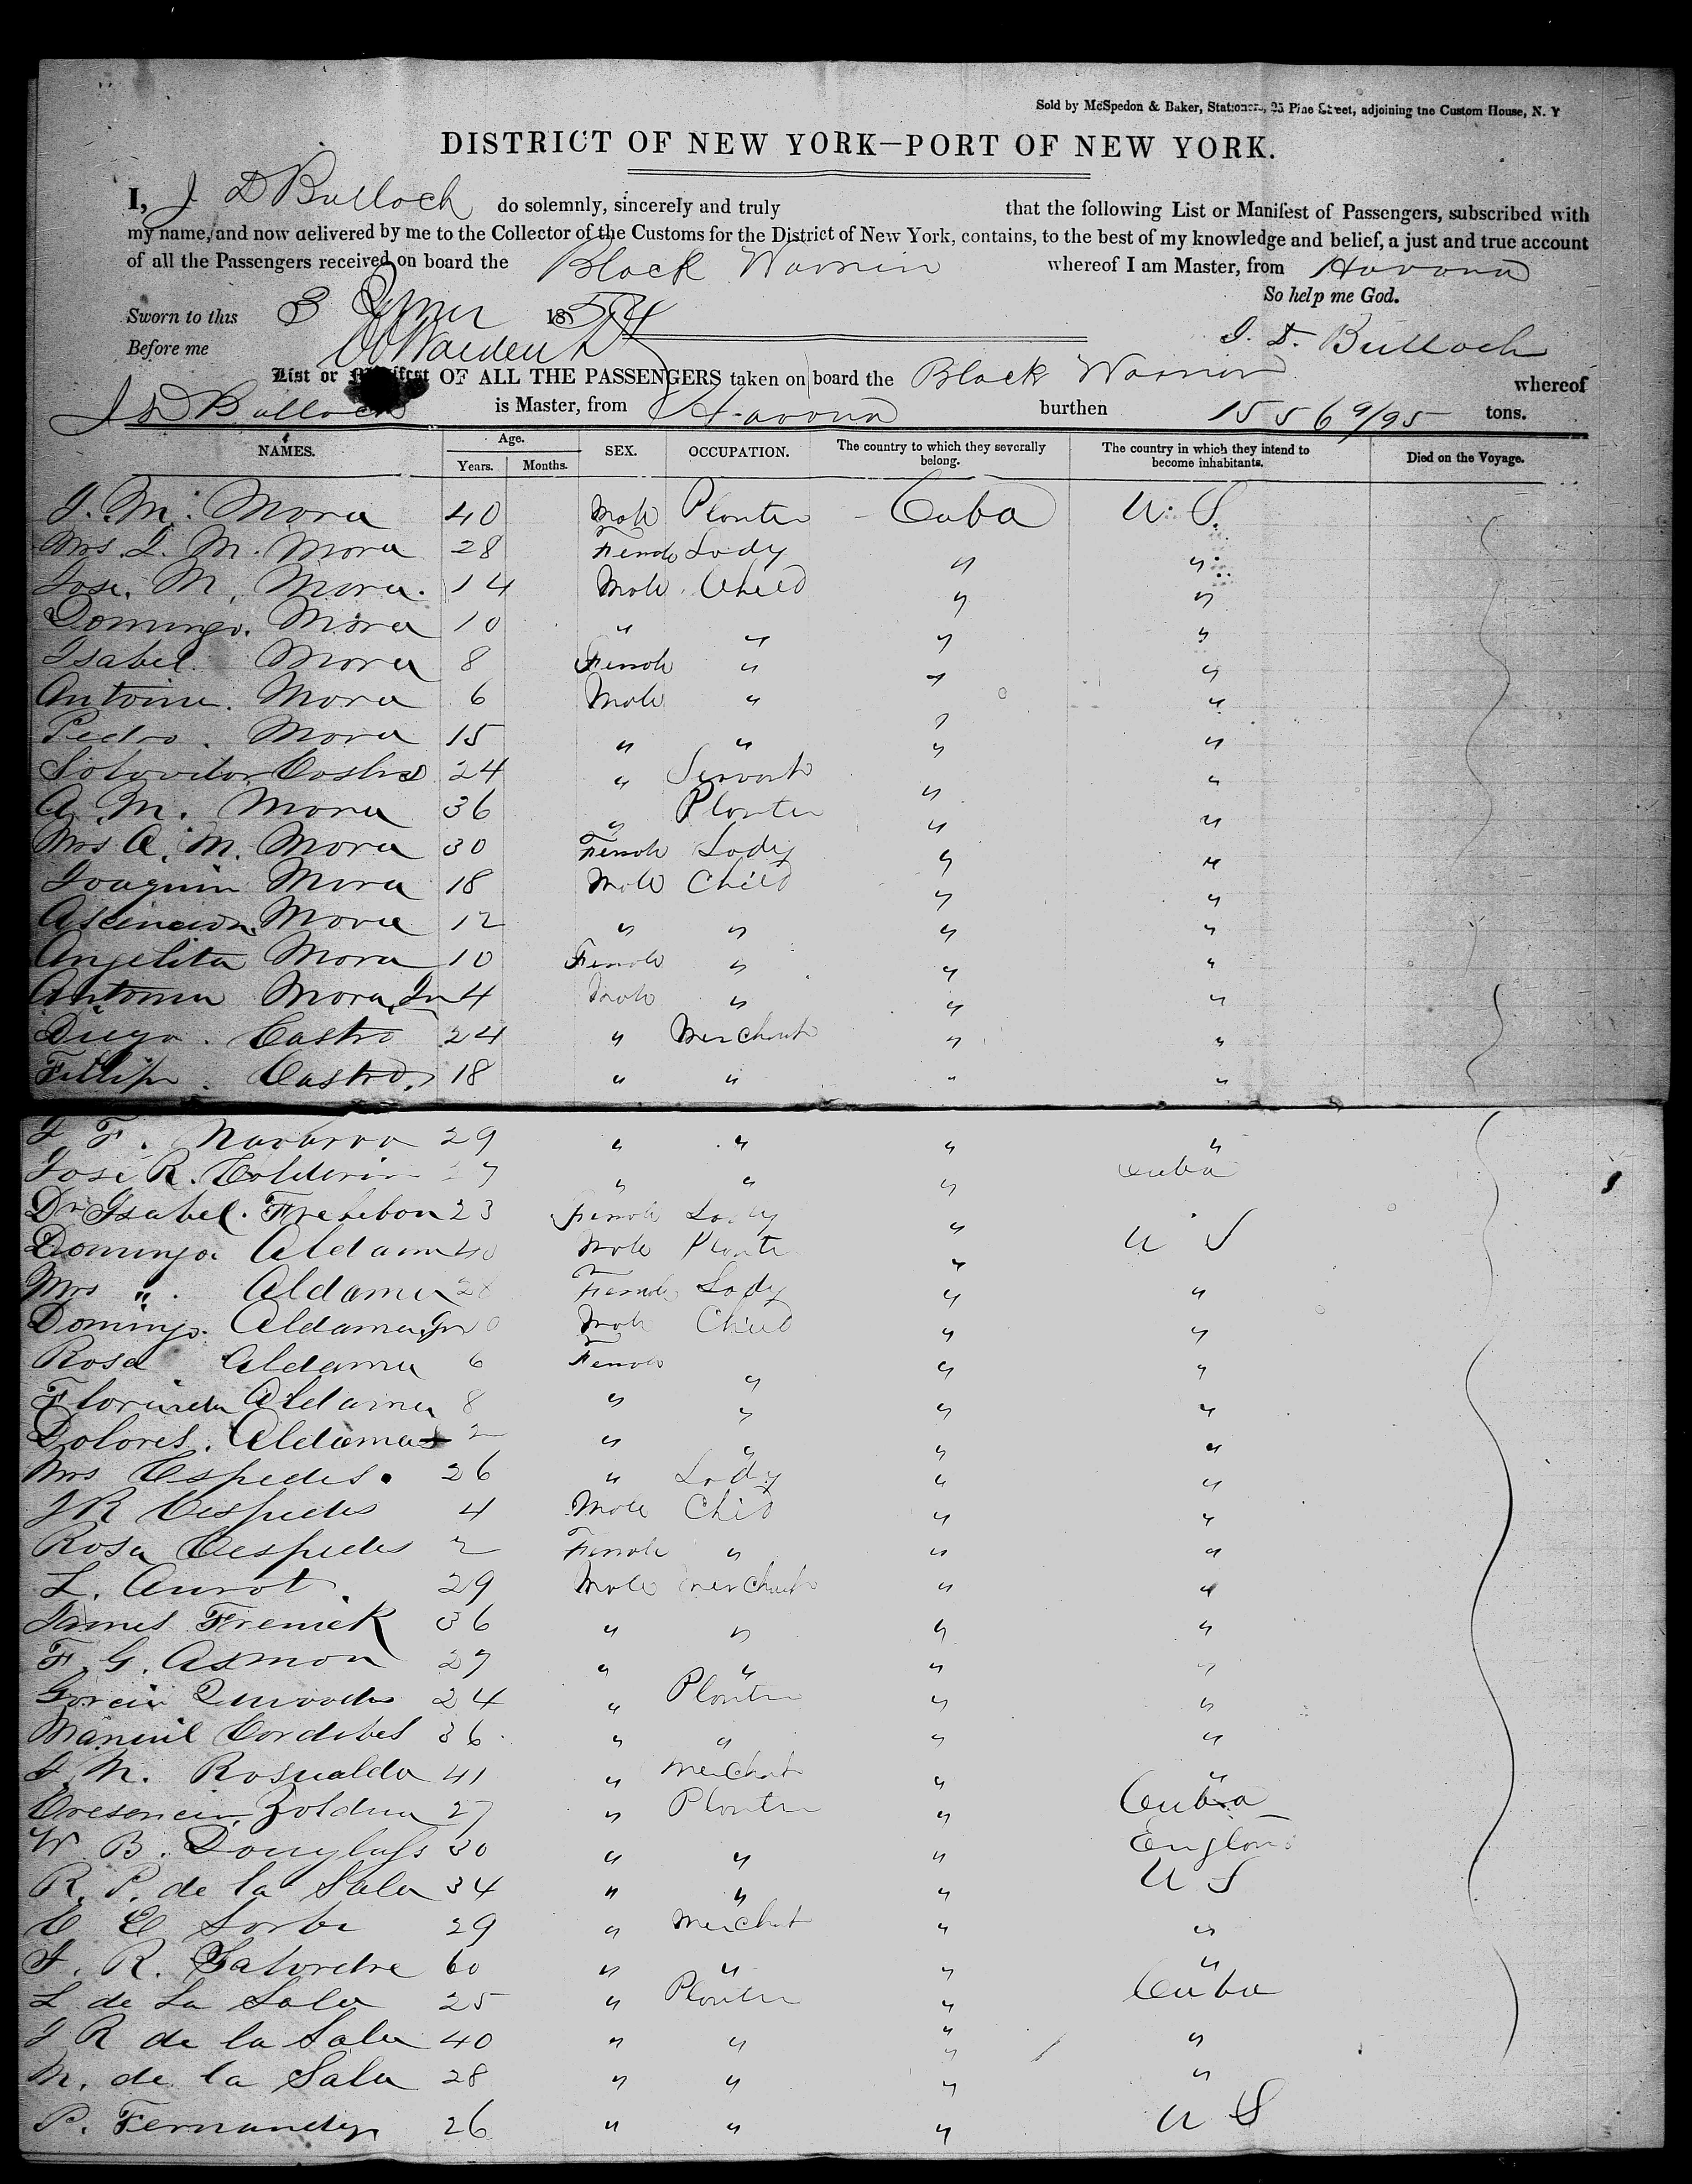 Sold by McSpedon & Baker, Stationers, 25 Pine Street, adjoining the Custom House, N. Y
DISTRICT OF NEW YORK—PORT OF NEW YORK.
I, J D Bulloch do solemnly, sincerely and truly that the following List or Manifest of Passengers, subscribed with
my name, and now delivered by me to the Collector of the Customs for the District of New York, contains, to the best of my knowledge and belief, a just and true account
of all the Passengers received on board the Black Warrior whereof I am Master, from Havana
So help me God.
Sworn to this 3 1854
Before me J. D. Bulloch
List or Manifest OF ALL THE PASSENGERS taken on board the Black Warrior whereof
J D Bulloch is Master, from Havana burthen 1556 9/95 tons.
NAMES. Age. Years. Months. SEX. OCCUPATION. The country to which they severally belong. The country in which they intend to become inhabitants. Died on the Voyage.
J. M. Mora 40 Male Planter Cuba U. S.
Mrs. J. M. Mora 28 Female Lady " "
Jose. M. Mora. 14 Male Child " "
Domingo. Mora 10 " " " "
Isabel. Mora 8 Female " " "
Antoine. Mora 6 Male " " "
Pedro. Mora 15 " " " "
Castro 24 " Servant " "
A. M. Mora 36 " Planter " "
Mrs A. M. Mora 30 Female Lady " "
Joaquin Mora 18 Male Child " "
Ascencion Mora 12 " " " "
Angelita Mora 10 Female " " "
Antonia Mora Jr 4 Male " " "
Diego. Castro 24 " Merchant " "
Fillip. Castro. 18 " " " "
J F. Navarro 29 " " " "
Jose R. Calderin " " " Cuba
Isabel. 23 Female Lady " U S
Domingo Aldama 40 Male Planter " "
Mrs ". Aldama 28 Female Lady " "
Domingo. Aldama Jr Male Child " "
Rosa Aldama 6 Female " " "
Florinda Aldama 8 " " " "
Dolores. Aldama 2 " " " "
Mrs Cespedes. 26 " Lady " "
J R Cespedes 4 Male Child " "
Rosa Cespedes 2 Female " " "
L. 29 Male Merchant " "
James Frenick 36 " " " "
F. G. Axmon 27 " " " "
Garcia 24 " Planter " "
Manuel Cordibes 36 " " " "
J. M. Rosualda 41 " Merchant " "
27 " Planter " Cuba
W B. Douglass 30 " " " England
R. P. de la Sala 34 " " " U S
29 " Merchant " "
J. R. 60 " " " "
L de La Sala 25 " Planter " Cuba
J R de la Sala 40 " " " "
M. de la Sala 28 " " " "
P. Fernandez 26 " " " U S